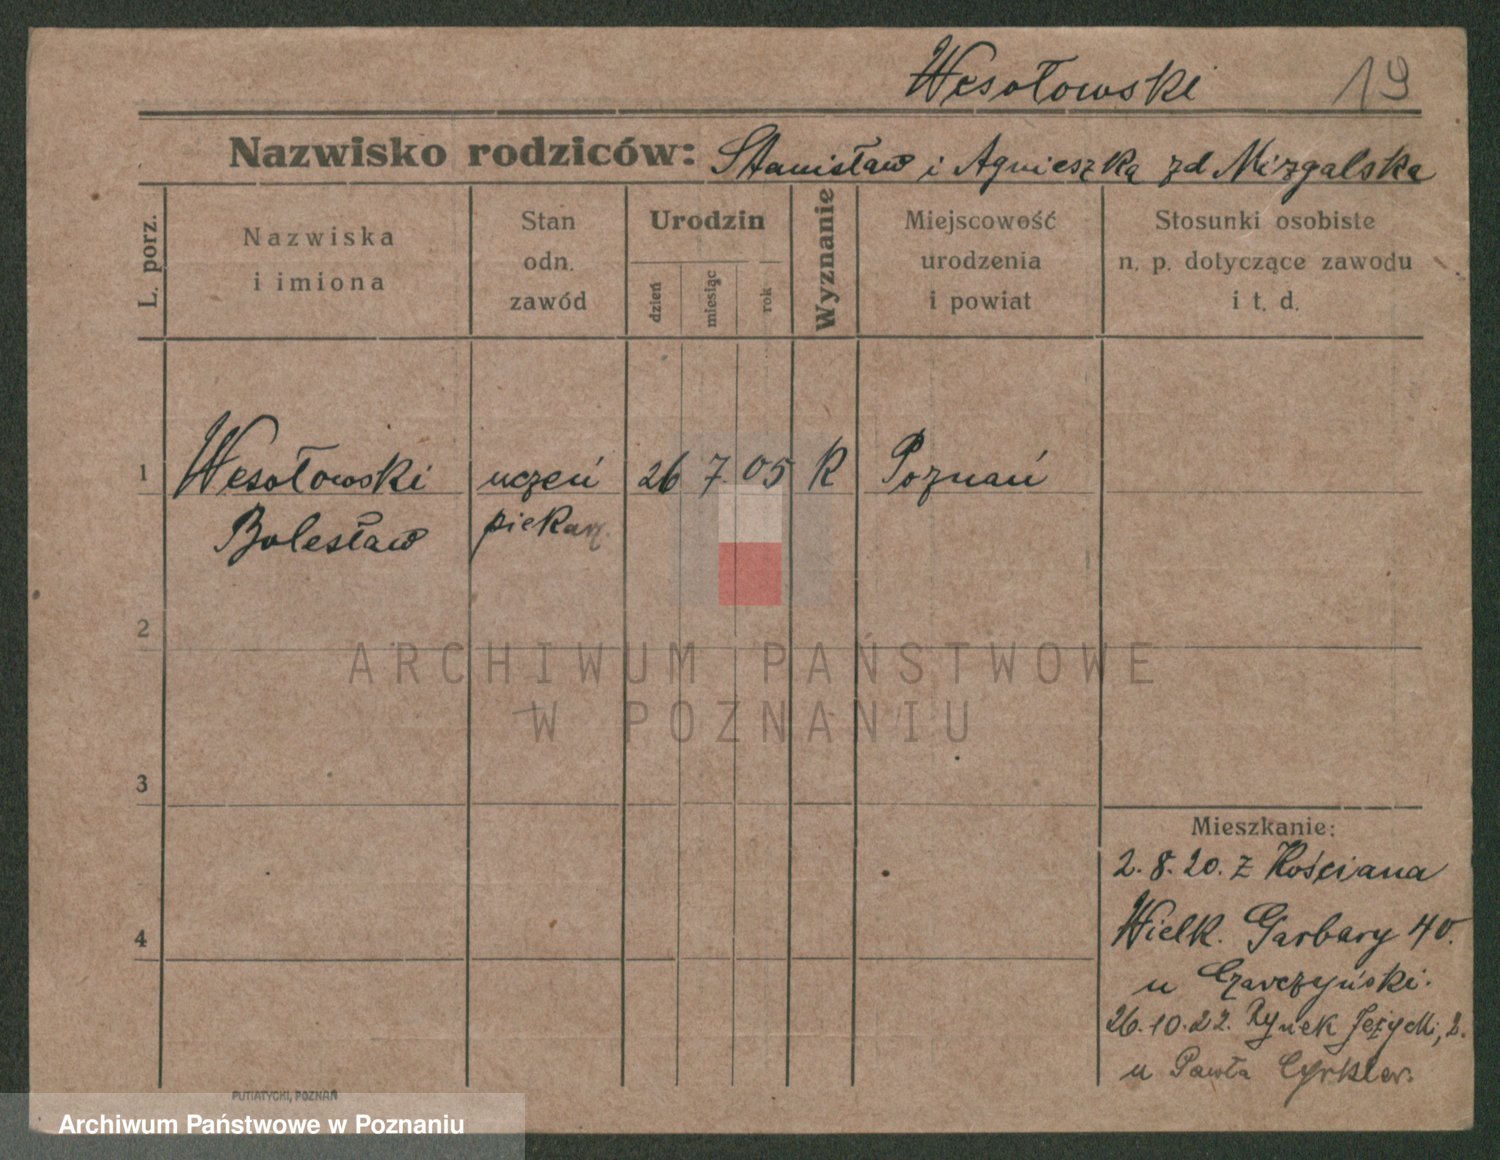 Wesołowski 19
Nazwisko rodziców: Stanisław i Agnieszka zd Mizgalska
L. porz.
Nazwiska
i imiona
Stan
odn.
zawód
Urodzin
dzień
miesiąc
rok
Wyznanie
Miejscowość
urodzenia
i powiat
Stosunki osobiste
n. p. dotyczące zawodu
i t. d.
1 Wesołowski uczeń 26 7. 05 K Poznań
Bolesław piekar.
2
ARCHIWUM PAŃSTWOWE
W POZNANIU
3
Mieszkanie:
2. 8. 20. z Kościana
4 Wielk. Garbary 40.
u Czarczyński.
26. 10. 22. Rynek Jeżycki, 2.
u Pawła Cyrkler.
PUTIATYCKI, POZNAŃ
Archiwum Państwowe w Poznaniu